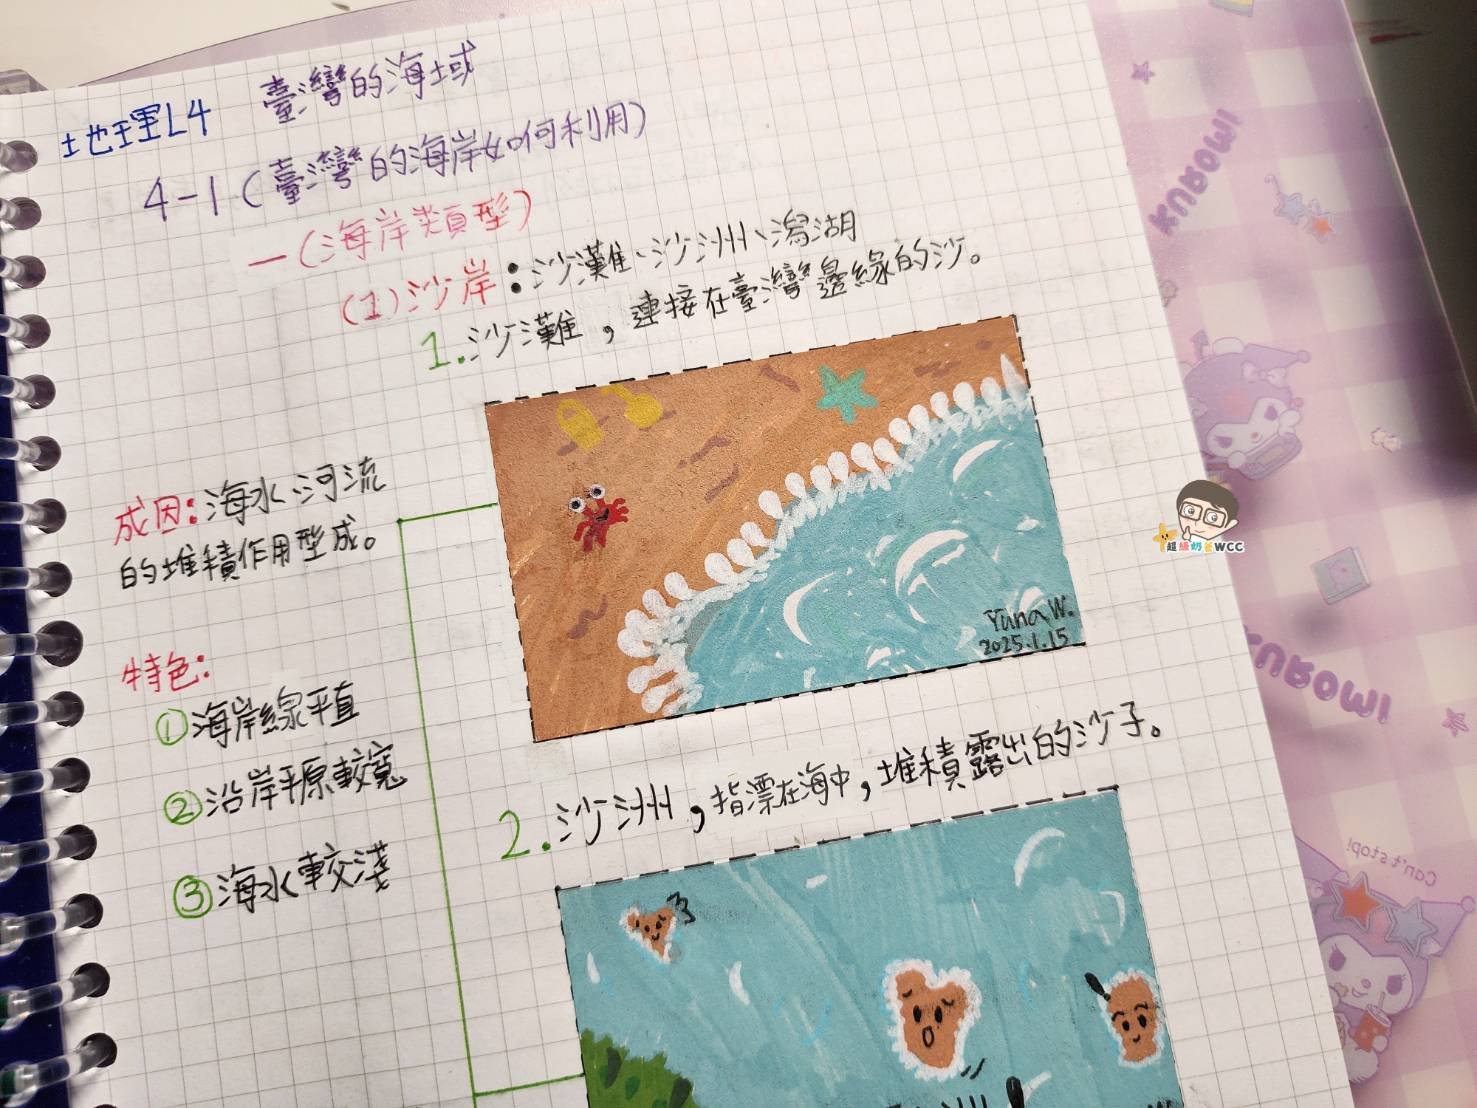 地理L4 臺灣的海域
4-1(臺灣的海岸如何利用)
一(海岸類型)
(1)沙岸:沙灘、沙洲、潟湖
1.沙灘,連接在臺灣邊緣的沙。
成因:海水、河流
的堆積作用型成。
特色:
①海岸線平直
②沿岸平原較寬
③海水較淺
Yuna W.
2025.1.15
2.沙洲,指漂在海中,堆積露出的沙子。
超級奶爸WCC
KUROMI
KUROMI
Can't stop!